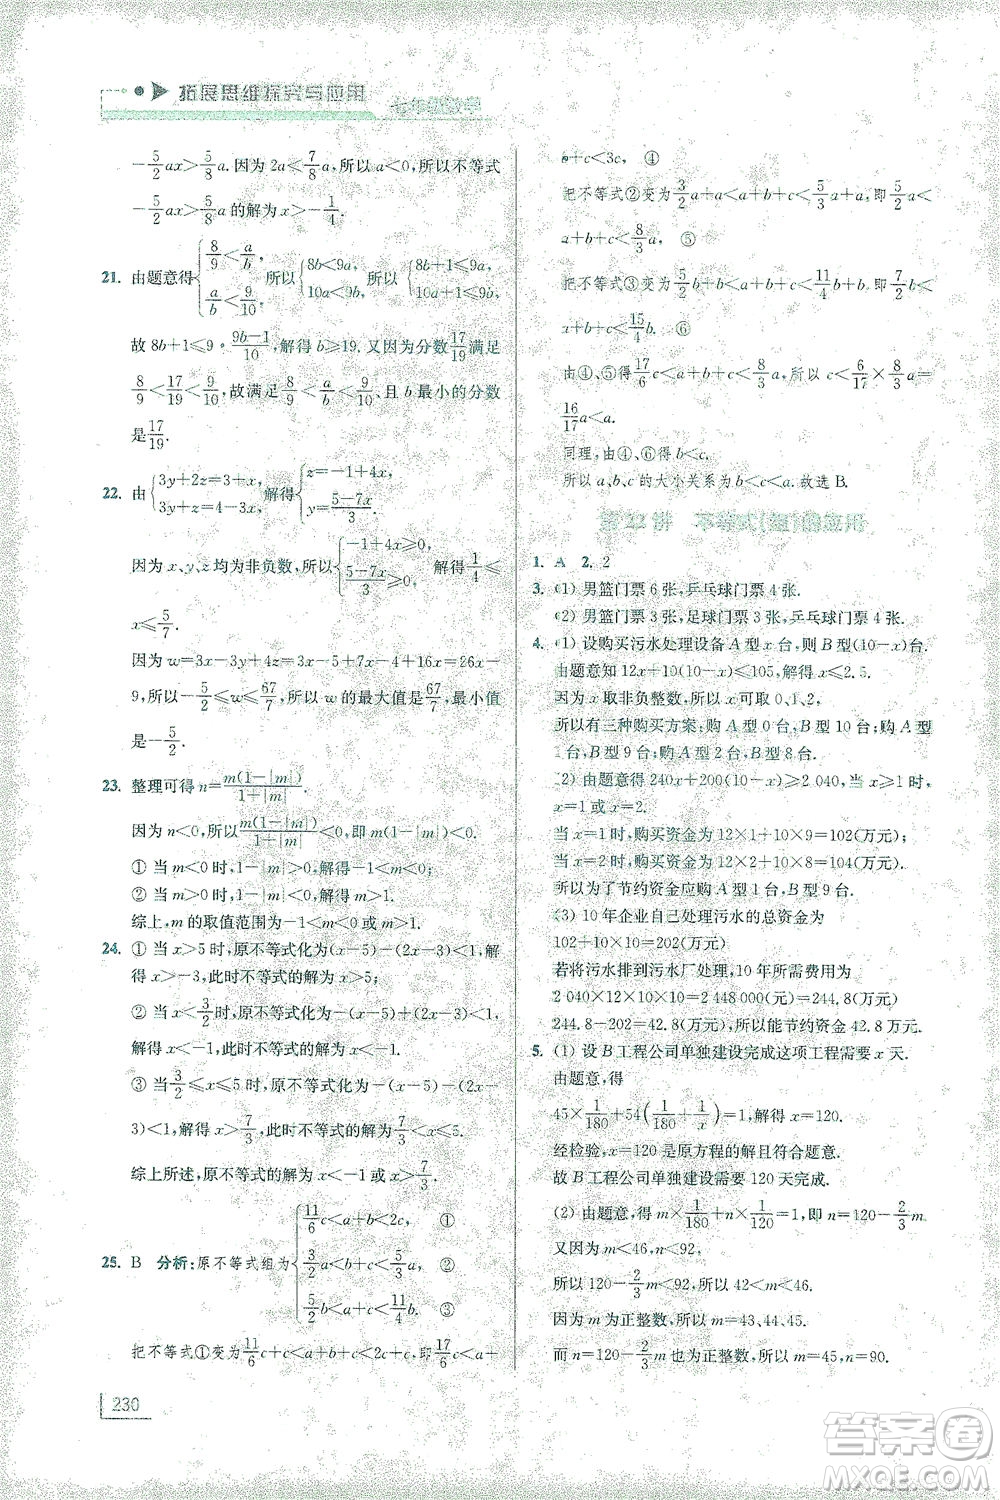 拓展思维探究与应用
−5/2 ax>5/8 a. 因为 2a≤7/8 a,所以 a<0,所以不等式
−5/2 ax>5/8 a 的解为 x>−1/4.
21. 由题意得{8/9<a/b, a/b<9/10, 所以{8b<9a, 10a<9b, 所以{8b+1≤9a, 10a+1≤9b,
故 8b+1≤9·(9b−1)/10,解得 b≥19. 又因为分数 17/19 满足
8/9<17/19<9/10,故满足 8/9<a/b<9/10、且 b 最小的分数
是 17/19.
22. 由{3y+2z=3+x, 3y+z=4−3x, 解得{z=−1+4x, y=(5−7x)/3,
因为 x、y、z 均为非负数,所以{−1+4x≥0, (5−7x)/3≥0, 解得 1/4≤
x≤5/7.
因为 w=3x−3y+4z=3x−5+7x−4+16x=26x−
9,所以−5/2≤w≤67/7,所以 w 的最大值是 67/7,最小值
是−5/2.
23. 整理可得 n=m(1−|m|)/(1+|m|).
因为 n<0,所以 m(1−|m|)/(1+|m|)<0,即 m(1−|m|)<0.
① 当 m<0 时,1−|m|>0,解得−1<m<0;
② 当 m>0 时,1−|m|<0,解得 m>1.
综上,m 的取值范围为−1<m<0 或 m>1.
24. ① 当 x>5 时,原不等式化为(x−5)−(2x−3)<1,解
得 x>−3,此时不等式的解为 x>5;
② 当 x<3/2 时,原不等式化为−(x−5)+(2x−3)<1,
解得 x<−1,此时原不等式的解为 x<−1;
③ 当 3/2≤x≤5 时,原不等式化为−(x−5)−(2x−
3)<1,解得 x>7/3,此时原不等式的解为 7/3<x≤5.
综上所述,原不等式的解为 x<−1 或 x>7/3.
25. B 分析:原不等式组为{11/6 c<a+b<2c, ① 3/2 a<b+c<5/3 a, ② 5/2 b<a+c<11/4 b. ③
把不等式①变为 11/6 c+c<a+b+c<2c+c,即 17/6 c<a+
b+c<3c, ④
把不等式②变为 3/2 a+a<a+b+c<5/3 a+a,即 5/2 a<
a+b+c<8/3 a, ⑤
把不等式③变为 5/2 b+b<a+b+c<11/4 b+b,即 7/2 b<
a+b+c<15/4 b. ⑥
由④、⑤得 17/6 c<a+b+c<8/3 a,所以 c<6/17×8/3 a=
16/17 a<a.
同理,由④、⑥可得 b<c.
所以 a、b、c 的大小关系为 b<c<a. 故选 B.
第 22 讲 不等式(组)的应用
1. A 2. 2
3. (1) 男篮门票 6 张,乒乓球门票 4 张.
(2) 男篮门票 3 张,足球门票 3 张,乒乓球门票 4 张.
4. (1) 设购买污水处理设备 A 型 x 台,则 B 型(10−x)台.
由题意知 12x+10(10−x)≤105,解得 x≤2.5.
因为 x 取非负整数,所以 x 可取 0、1、2.
所以有三种购买方案:购 A 型 0 台,B 型 10 台;购 A 型
1 台,B 型 9 台;购 A 型 2 台,B 型 8 台.
(2) 由题意得 240x+200(10−x)≥2 040,当 x≥1 时,
x=1 或 x=2.
当 x=1 时,购买资金为 12×1+10×9=102(万元);
当 x=2 时,购买资金为 12×2+10×8=104(万元).
所以为了节约资金应购 A 型 1 台,B 型 9 台.
(3) 10 年企业自己处理污水的总资金为
102+10×10=202(万元)
若将污水排到污水厂处理,10 年所需费用为
2 040×12×10×10=2 448 000(元)=244.8(万元)
244.8−202=42.8(万元),所以能节约资金 42.8 万元.
5. (1) 设 B 工程公司单独建设完成这项工程需要 x 天.
由题意,得
45×1/180+54(1/180+1/x)=1,解得 x=120.
经检验,x=120 是原方程的解且符合题意.
故 B 工程公司单独建设需要 120 天完成.
(2) 由题意,得 m×1/180+n×1/120=1,即 n=120−2/3 m.
又因为 m<46,n<92,
所以 120−2/3 m<92,所以 42<m<46.
因为 m 为正整数,所以 m=43、44、45.
而 n=120−2/3 m 也为正整数,所以 m=45,n=90.
230
答案圈
MXQE.COM